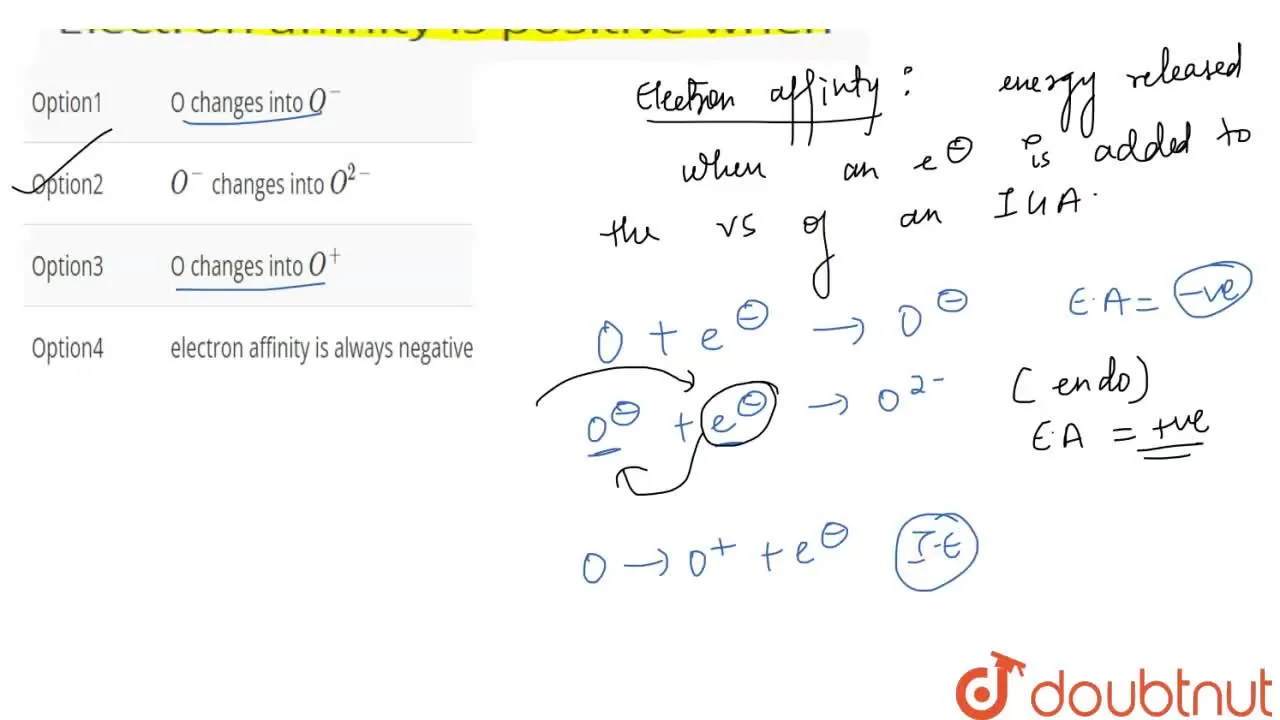 Electron affinity is positive when
Option1 O changes into O⁻
Option2 O⁻ changes into O²⁻
Option3 O changes into O⁺
Option4 electron affinity is always negative
Electron affinty: energy released
when an e⊖ is added to
the VS of an IGA.
O + e⊖ → O⊖ E.A = -ve
O⊖ + e⊖ → O²⁻ (endo)
E.A = +ve
O → O⁺ + e⊖ I.E
doubtnut